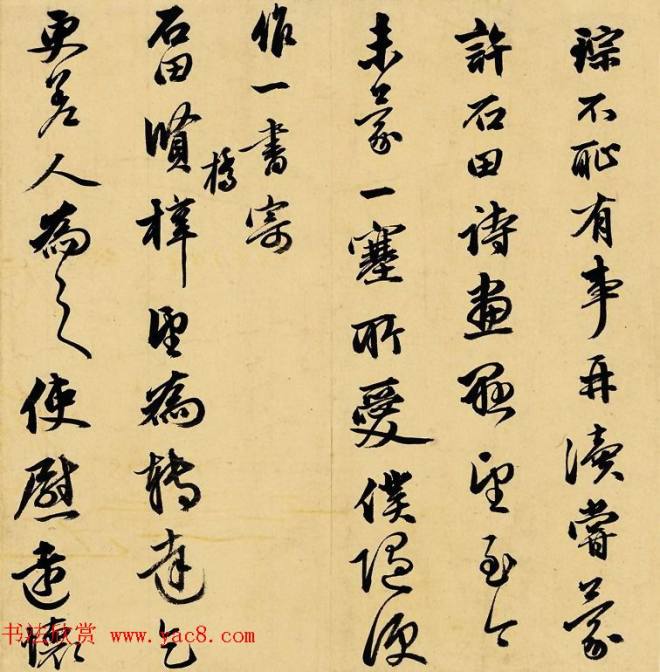 琮不耻有事再瀆嘗蒙
許石田詩畫懸望至今
未蒙一塞所愛僕便
作一書寄
橋
石田賢梓望為轉達乞
更差人為之使慰遠懷
书法欣赏 www.yac8.com